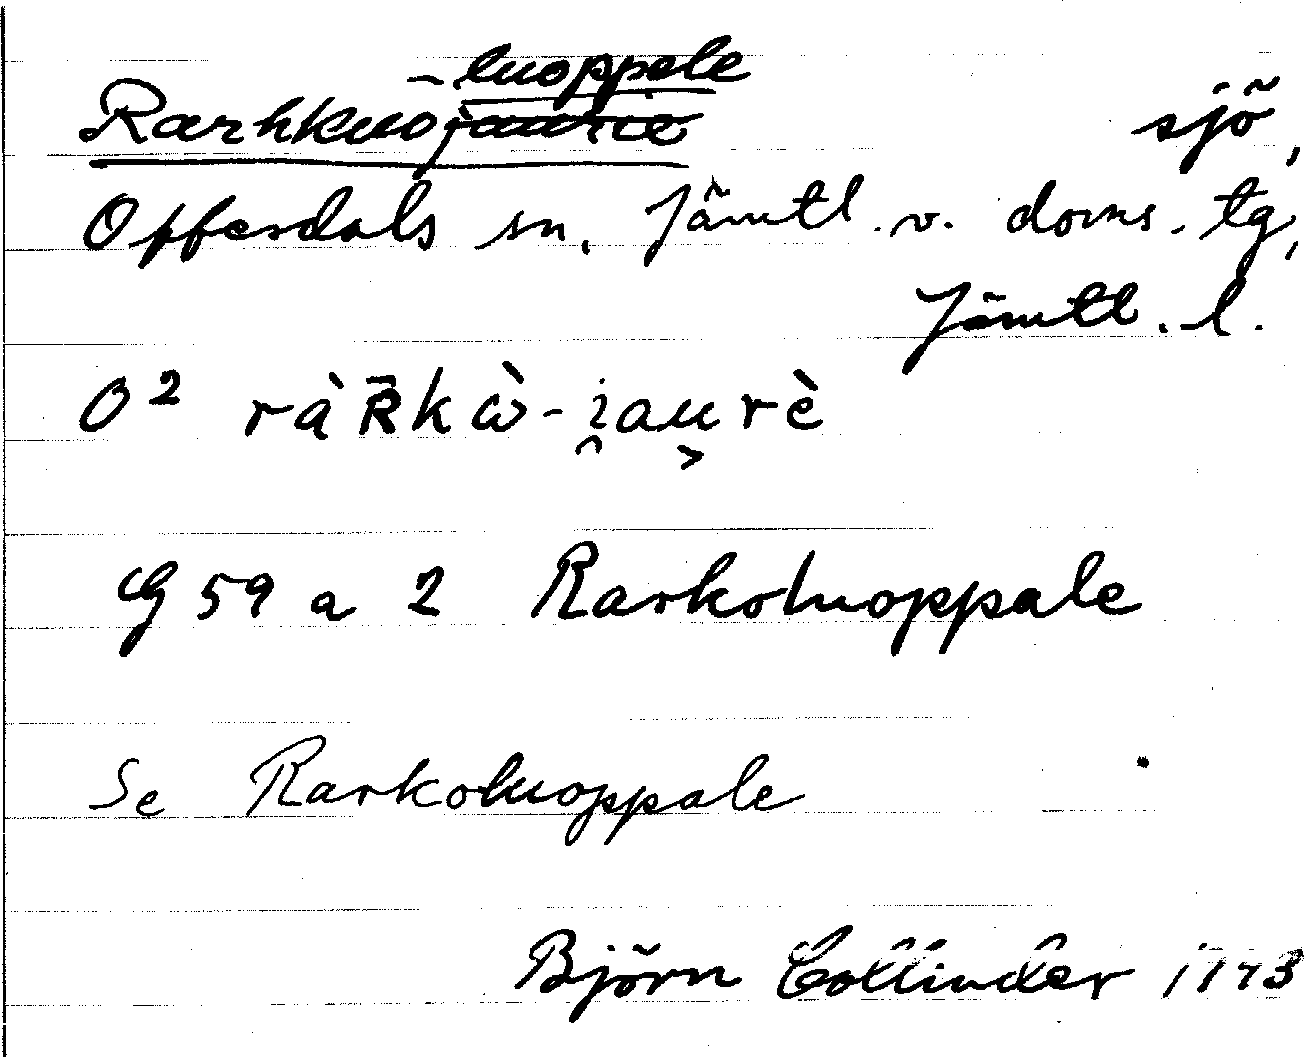 -luoppale
Rarhkuojaurie sjö,
Offerdals sn, Jämtl. v. doms. tg,
Jämtl. l.
O² ràʀ̄kὼ-i̯au̬rè
G 59 a 2 Rarkoluoppale
Se Rarkoluoppale
Björn Collinder 1943